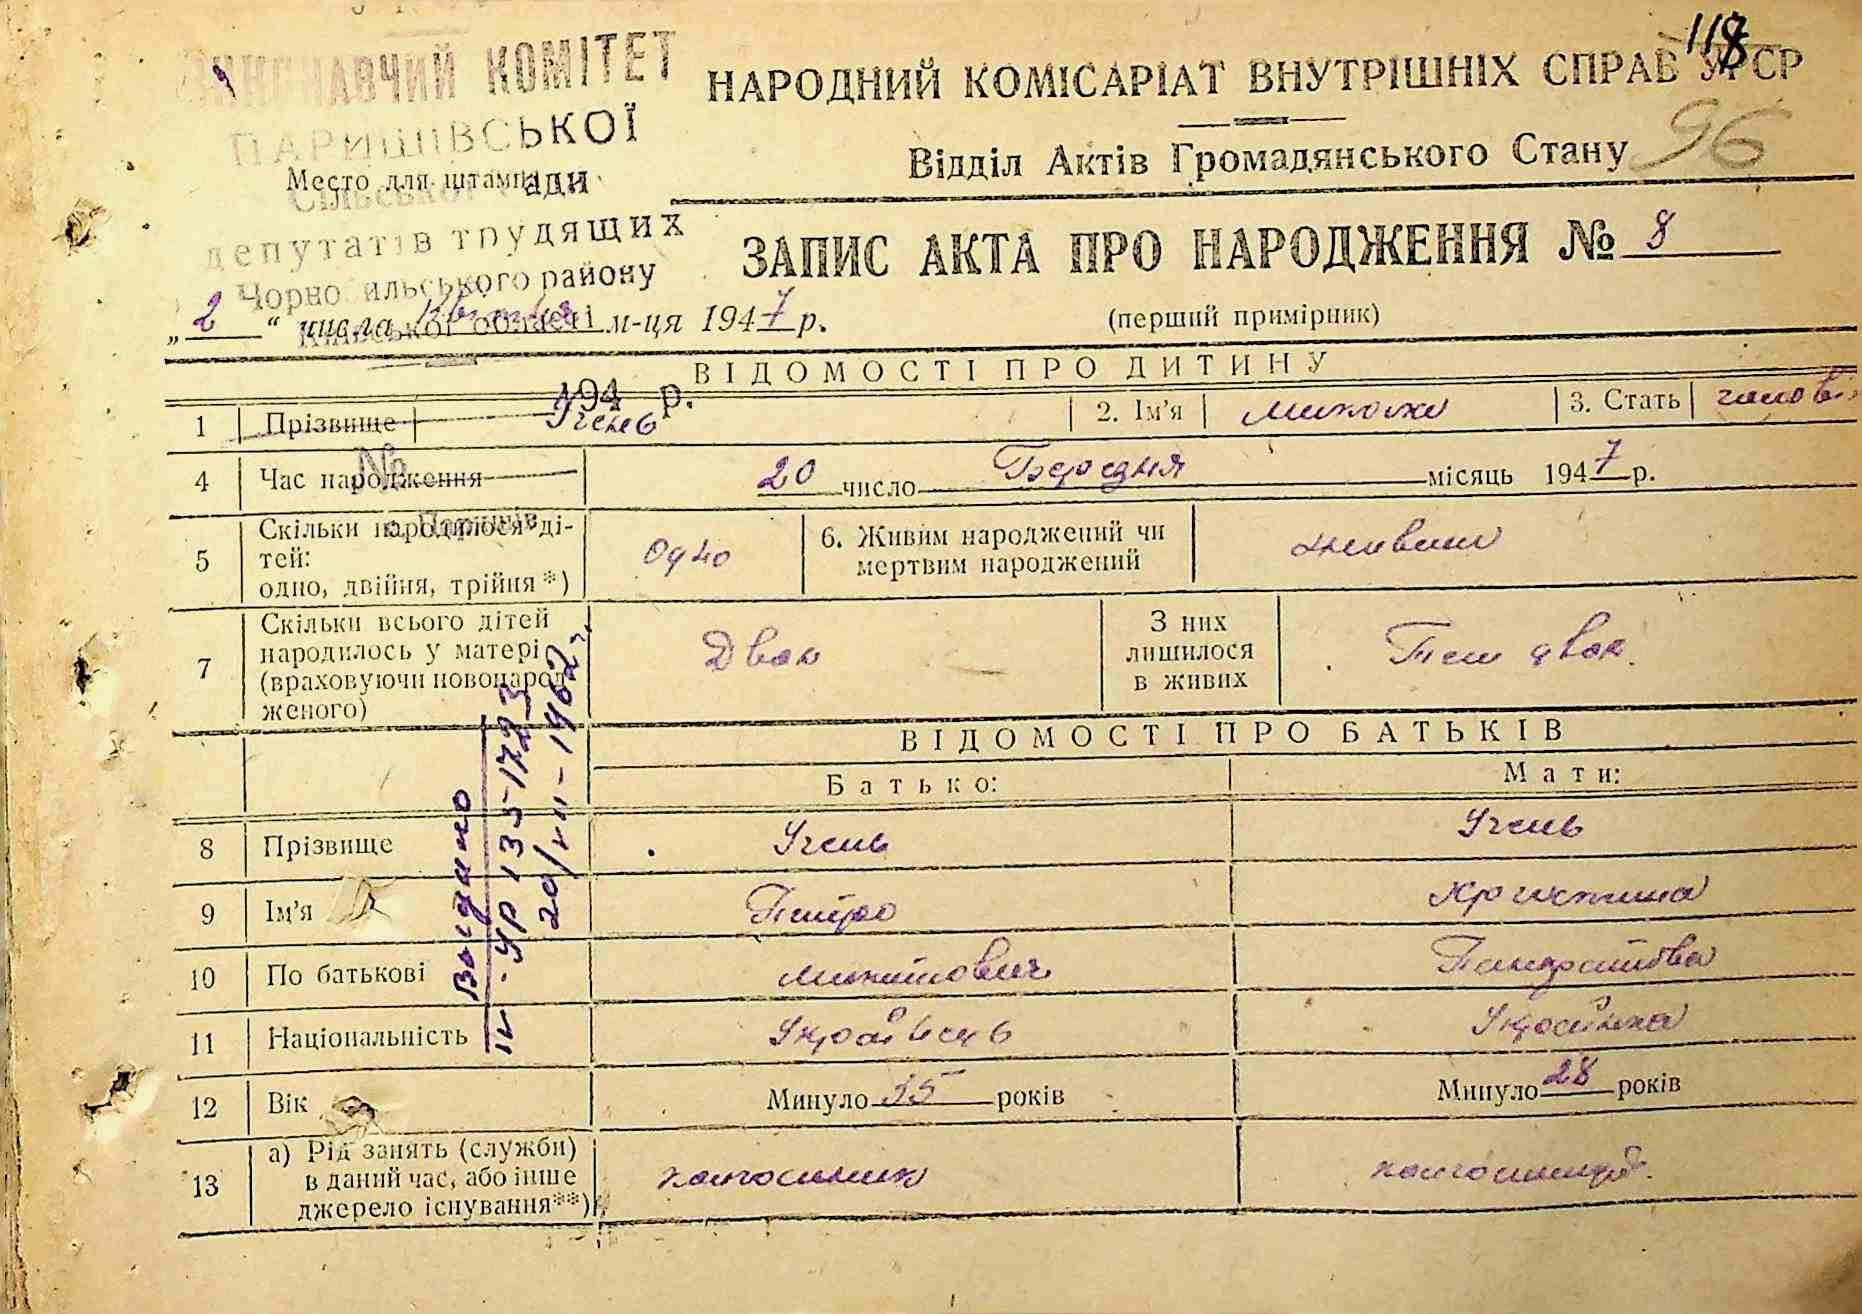 118
ВИКОНАВЧИЙ КОМІТЕТ
ПАРИШІВСЬКОЇ
Сільської ради
депутатів трудящих
Чорнобильського району
Київської області
194 р.
№
с. Паришів
Место для штампа
НАРОДНИЙ КОМІСАРІАТ ВНУТРІШНІХ СПРАВ УРСР
96
Відділ Актів Громадянського Стану
ЗАПИС АКТА ПРО НАРОДЖЕННЯ № 8
„2“ числа Квітня м-ця 1947 р.
(перший примірник)
ВІДОМОСТІ ПРО ДИТИНУ
1 Прізвище Учень 2. Ім'я Микола 3. Стать чолов.
4 Час народження 20 число Березня місяць 1947 р.
5 Скільки народилося дітей:
одно, двійня, трійня *) Одно 6. Живим народжений чи
мертвим народжений живим
7 Скільки всього дітей
народилось у матері
(враховуючи новонарод-
женого) Двок З них
лишилося
в живих Теш двок.
ВІДОМОСТІ ПРО БАТЬКІВ
Батько: Мати:
8 Прізвище Учень Учень
9 Ім'я Петро Христина
10 По батькові Микитович Панкратовна
11 Національність Українець Українка
12 Вік Минуло 35 років Минуло 28 років
13 а) Рід занять (служби)
в даний час, або інше
джерело існування**) колгоспник колгоспниця.
Выдано
II-УР 135-1723
20/VII-1962 г.